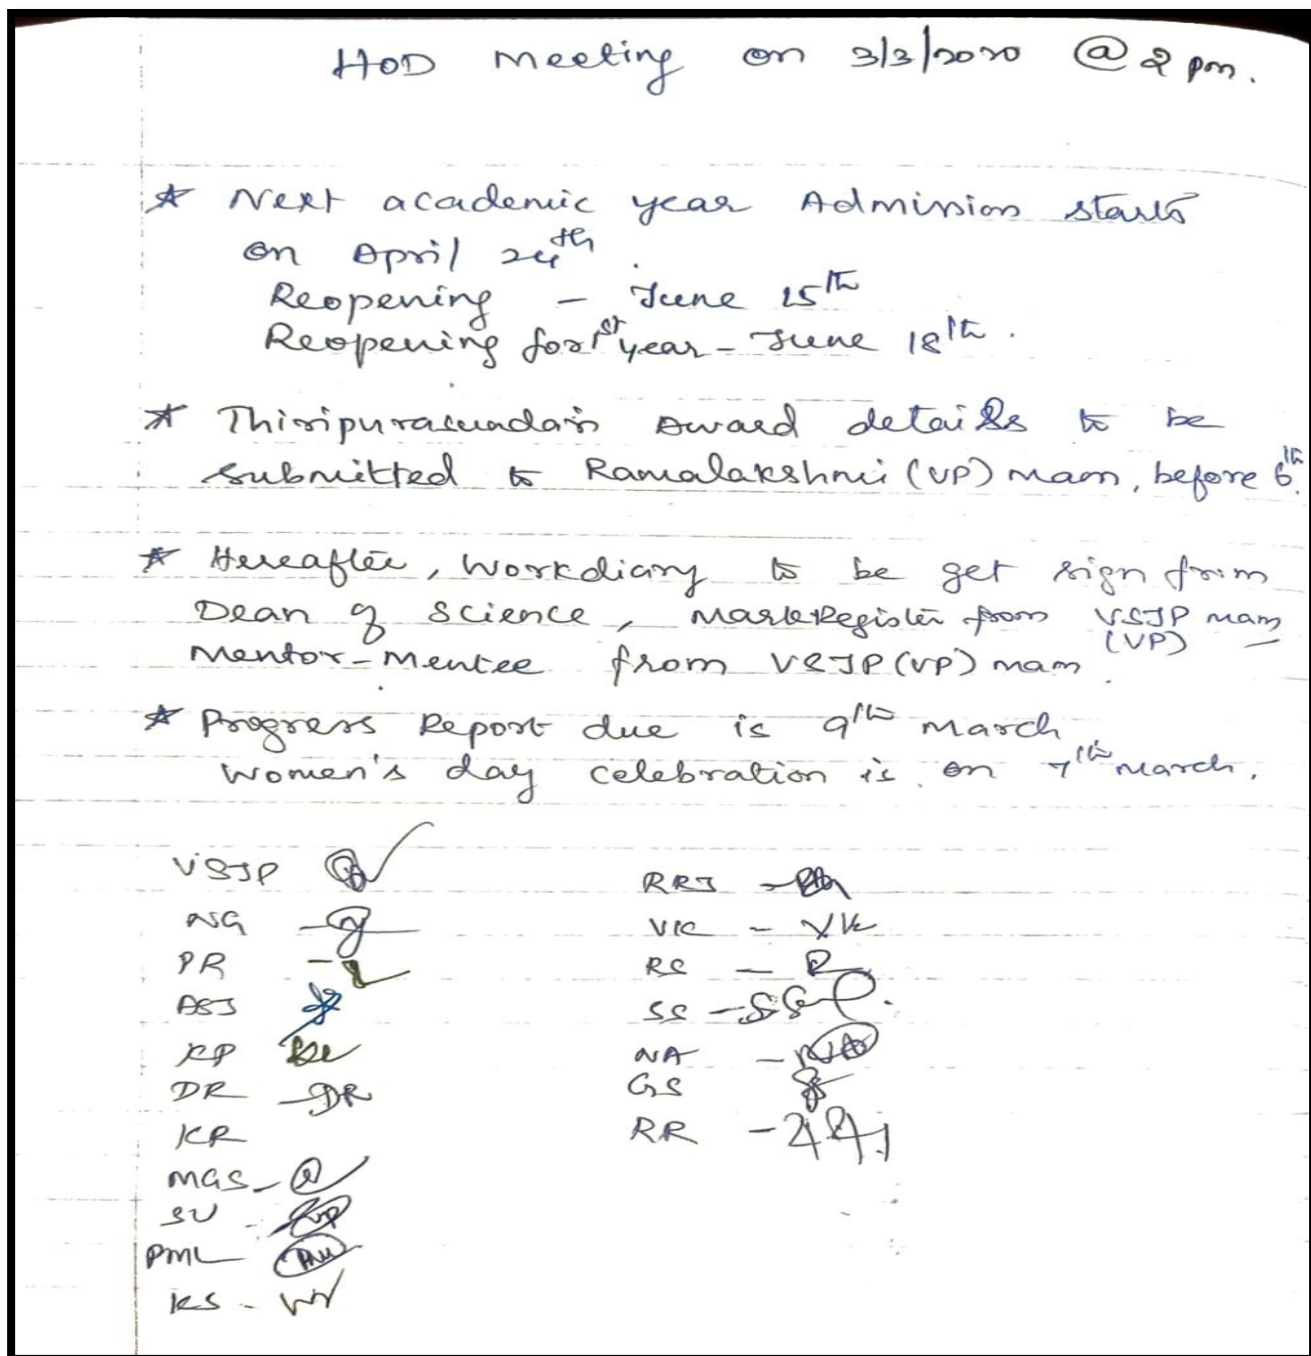 HOD meeting on 3/3/2020 @ 2 pm.
* Next academic year Admission starts
on April 24th.
Reopening - June 15th
Reopening for 1st year - June 18th.
* Thiripurasundari Award details to be
submitted to Ramalakshmi (VP) mam, before 6th.
* Hereafter, workdiary to be get sign from
Dean of Science, MarkRegister from VSJP mam
(VP)
Mentor-Mentee from VSJP (VP) mam.
* Progress Report due is 9th March
Women's day celebration is on 7th March.
VSJP
RRJ -
NG -
VK - VK
PR -
RS -
ASJ
SS - SS
KP
NA - NA
DR - DR
GS
KR
RR -
MGS -
SU -
PML
KS -